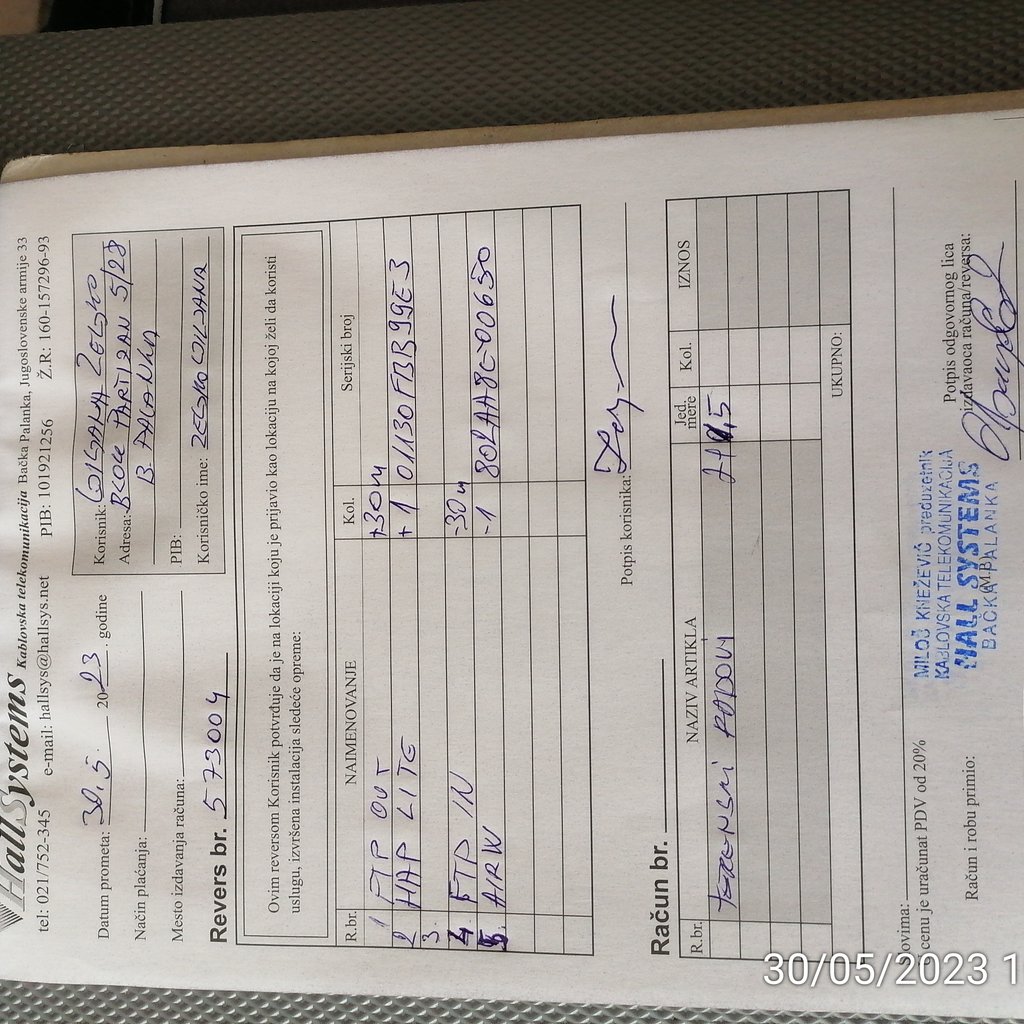 HallSystems Kablovska telekomunikacija Bačka Palanka, Jugoslovenske armije 33
tel: 021/752-345 e-mail: hallsys@hallsys.net PIB: 101921256 Ž.R: 160-157296-93
Datum prometa: 30.5. 2023. godine
Način plaćanja:
Mesto izdavanja računa:
Korisnik: GOLJANA ZELJKO
Adresa: BLOK PARTIZAN 5/28
B. PALANKA
PIB:
Korisničko ime: ZELJKO GOLJANA
Revers br. 573004
Ovim reversom Korisnik potvrđuje da je na lokaciji koju je prijavio kao lokaciju na kojoj želi da koristi
uslugu, izvršena instalacija sledeće opreme:
R.br. NAIMENOVANJE Kol. Serijski broj
1 FTP OUT +30m
2 HAP LITE +1 01130FBB99E3
3.
4. FTP IN -30m
5. AIRW -1 802AA8C00650
Potpis korisnika:
Račun br.
R.br. NAZIV ARTIKLA Jed. mere Kol. IZNOS
TERENSKI RADOVI
UKUPNO:
Slovima:
U cenu je uračunat PDV od 20%
Račun i robu primio:
MILOŠ KNEŽEVIĆ preduzetnik
KABLOVSKA TELEKOMUNIKACIJA
HALL SYSTEMS
M.P.
BAČKA PALANKA
Potpis odgovornog lica
izdavaoca računa/reversa:
30/05/2023 1